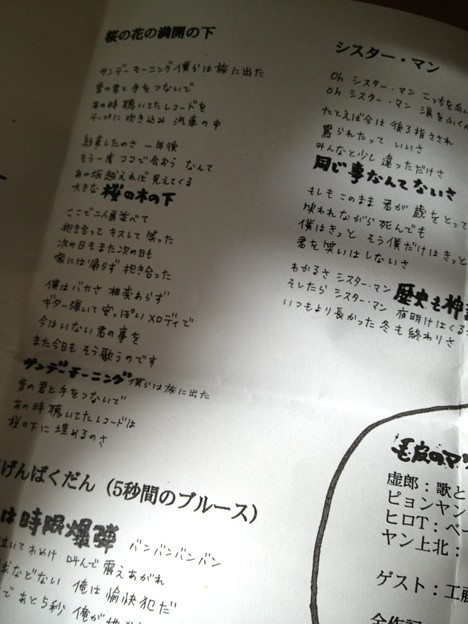 桜の花の満開の下
サンデーモーニング僕らは旅に出た
昔の君と手をつないで
あの時聴いてたレコードを
テープに吹き込み 汽車の中
約束したのさ 一年後
もう一度 ココで会おう なんて
あの坂越えれば 見えてくる
大きな 桜の木の下
ここで二人肩並べて
抱き合って キスして 笑った
次の日もまた次の日も
家には帰らず 抱き合った
僕はバカさ 相変わらず
ギター弾いて 安っぽい メロディで
今はいない君の事を
また今日も そう歌うのです
サンデーモーニング僕らは旅に出た
昔の君と手をつないで
あの時聴いてたレコードは
桜の下に 埋めるのさ
げんばくだん（5秒間のブルース）
は時限爆弾 バンバンバンバン
泣いてわめけ 叫んで 震えあがれ
などない 俺は愉快犯だ
で あと5秒 俺が
シスター・マン
Oh シスター・マン こっちを
Oh シスター・マン 涙を
たとえば今は 後ろ指さされ
罵られたって いいさ
みんなと少し 違っただけさ
同じ事なんてないさ
もしも このまま 君が 歳をとって
笑われながら 死んでも
僕はきっと そう僕だけはきっと
君を笑いはしないさ
わかるさ シスター・マン 歴史も神
そしたら シスター・マン 夜明けはくる
いつもより長かった 冬も 終わりさ
毛皮のマ
虚郎：歌と
ピョンヤン
ヒロT：ベー
ヤン上北：
ゲスト：工藤